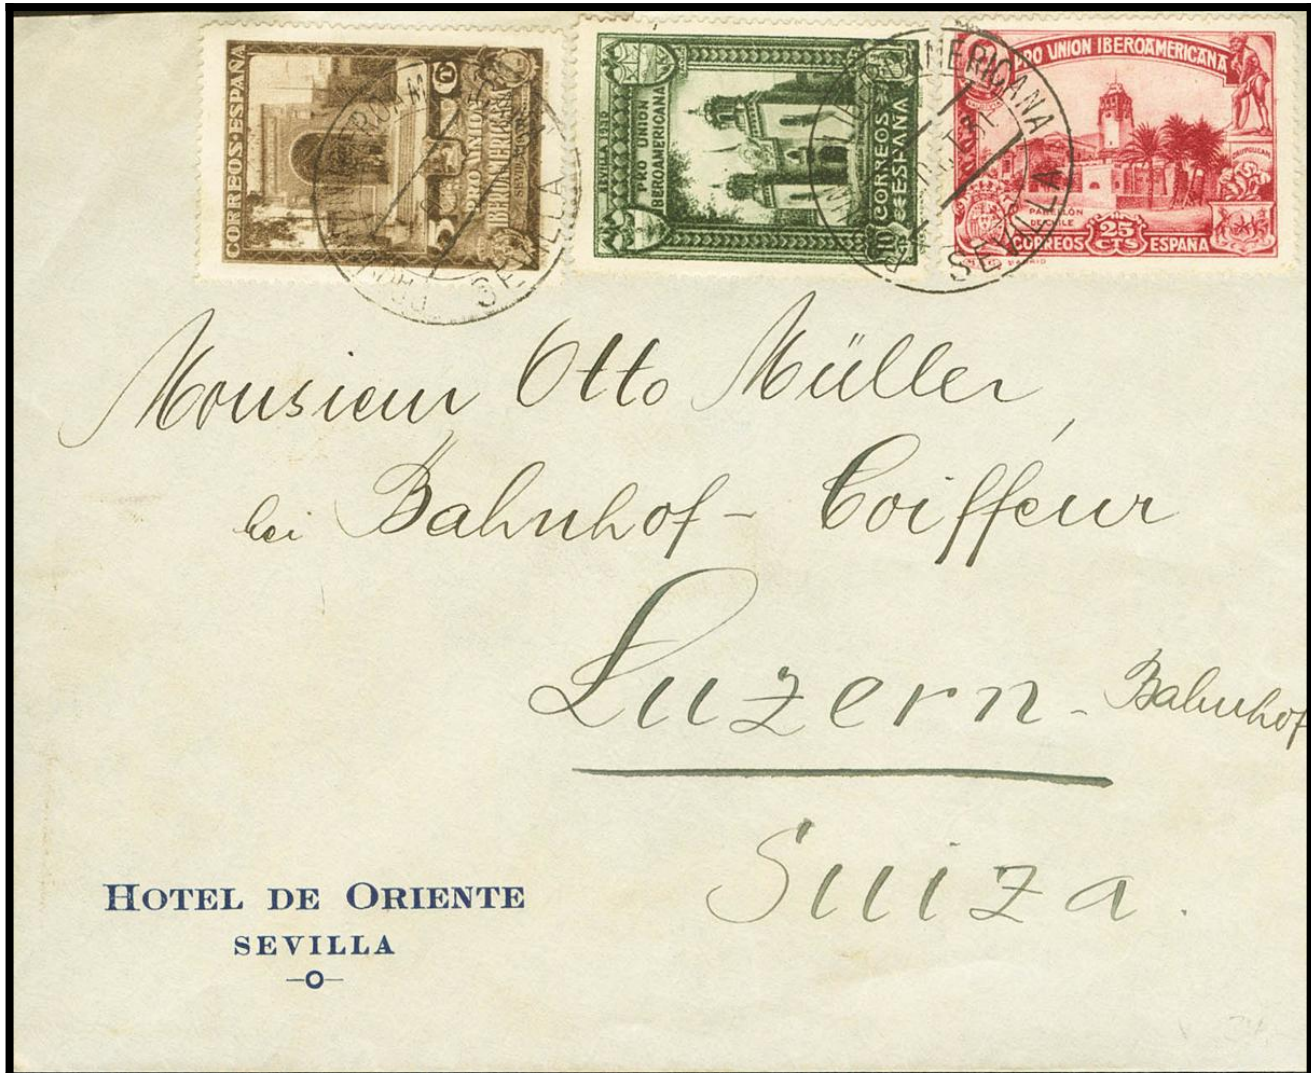 CORREOS ESPAÑA
PRO UNION
IBEROAMERICANA
SEVILLA
SEVILLA 1930
PRO UNION
IBEROAMERICANA
CORREOS
ESPAÑA
10
PRO UNION IBEROAMERICANA
PABELLÓN
DE CHILE
CORREOS 25 CTS ESPAÑA
AMERICANA
SEVILLA
Monsieur Otto Müller,
bei Bahnhof - Coiffeur
Luzern - Bahnhof
Suiza.
HOTEL DE ORIENTE
SEVILLA